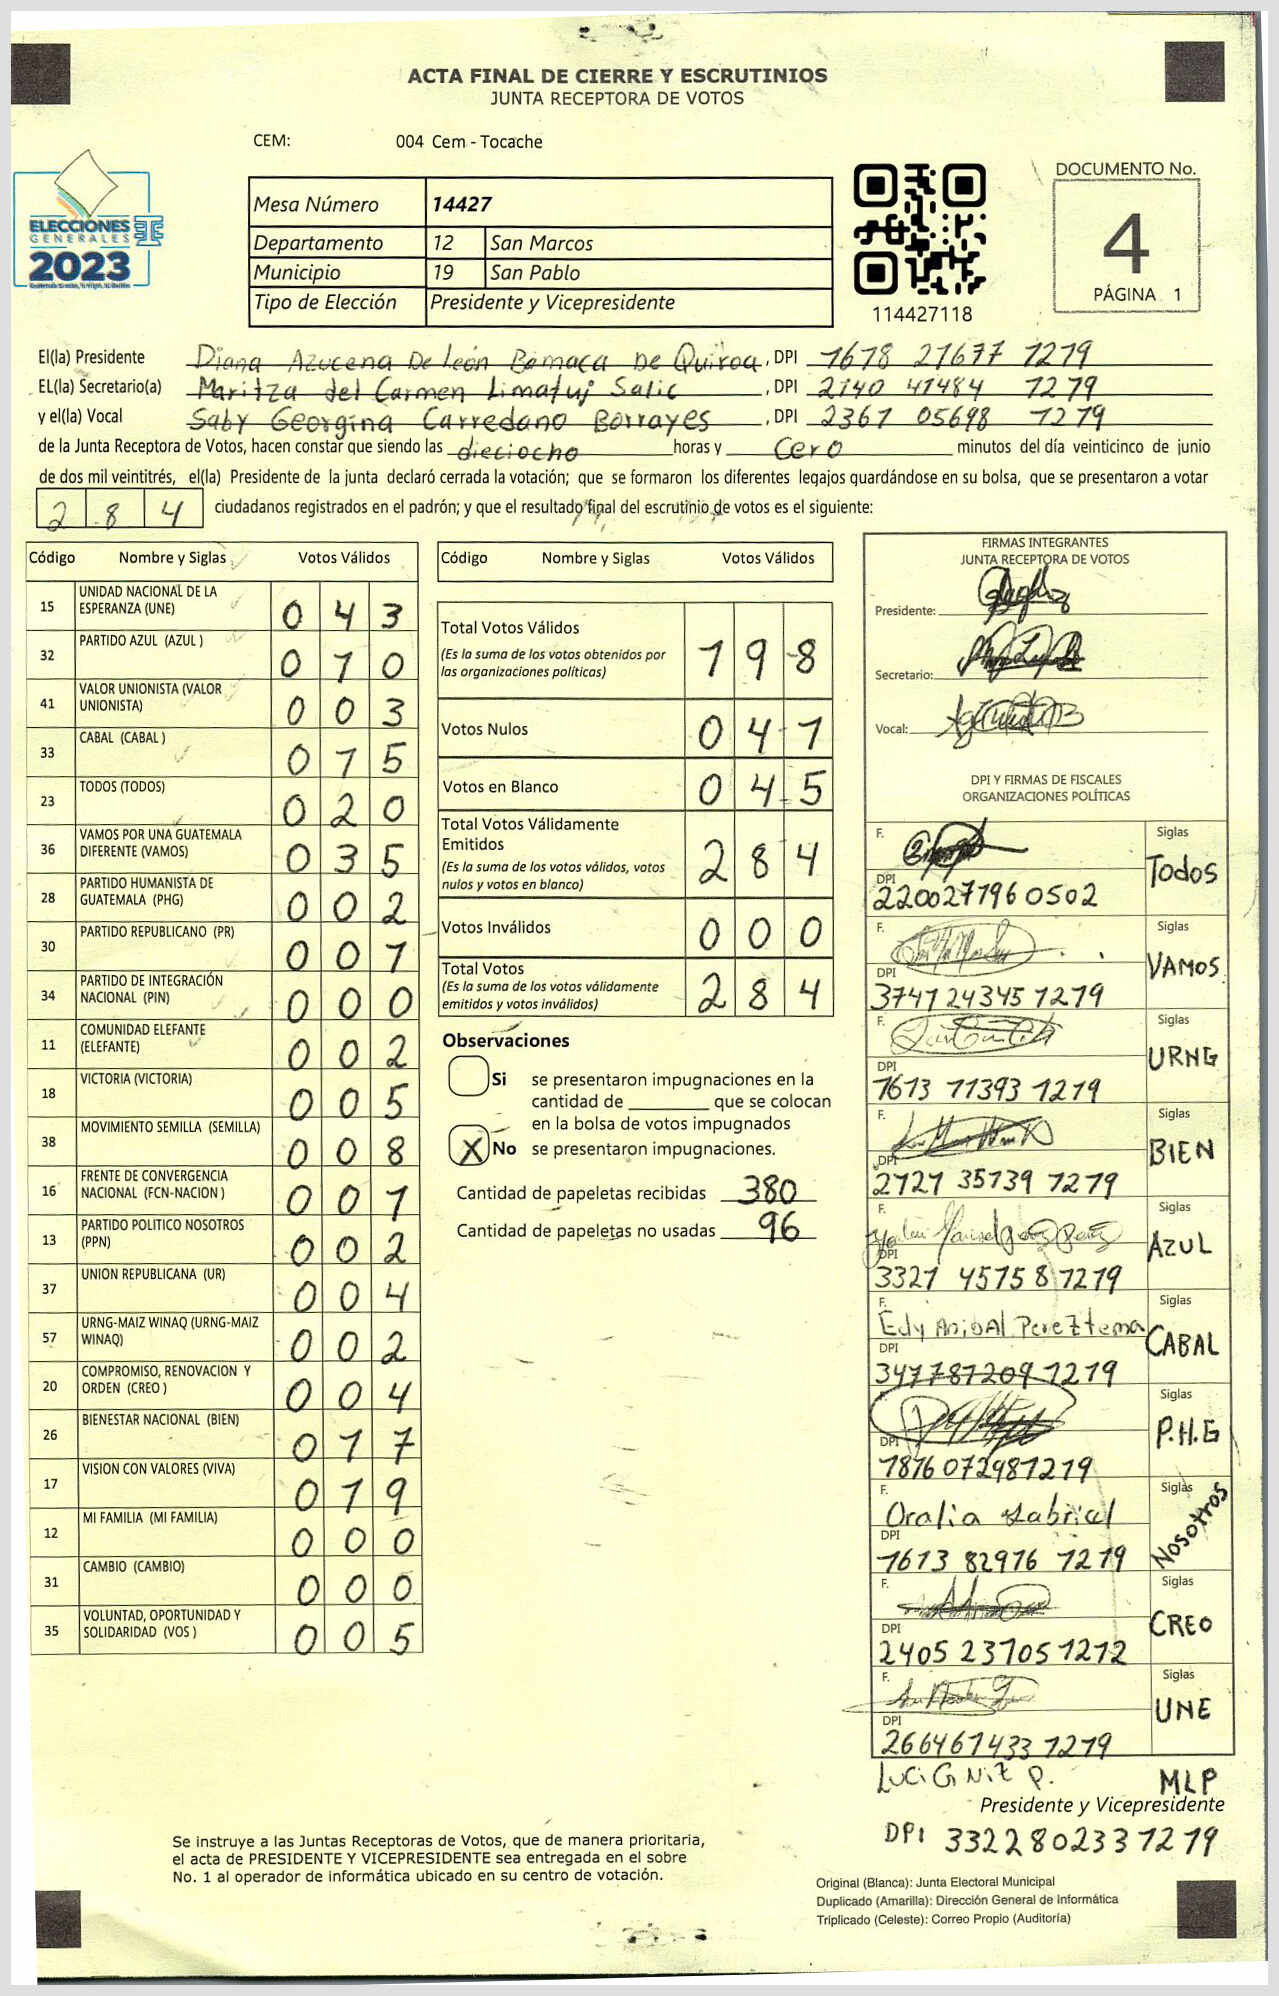 ACTA FINAL DE CIERRE Y ESCRUTINIOS
JUNTA RECEPTORA DE VOTOS
CEM: 004 Cem - Tocache
ELECCIONES
GENERALES
2023
Mesa Número 14427
Departamento 12 San Marcos
Municipio 19 San Pablo
Tipo de Elección Presidente y Vicepresidente
114427118
DOCUMENTO No.
4
PÁGINA 1
El(la) Presidente Diana Azucena De León Bámaca De Quiroa, DPI 1678 21677 1219
EL(la) Secretario(a) Maritza del Carmen Limatuj Salic, DPI 2140 41484 1279
y el(la) Vocal Saby Georgina Carredano Borrayes, DPI 2367 05698 1279
de la Junta Receptora de Votos, hacen constar que siendo las dieciocho horas y Cero minutos del día veinticinco de junio
de dos mil veintitrés, el(la) Presidente de la junta declaró cerrada la votación; que se formaron los diferentes legajos guardándose en su bolsa, que se presentaron a votar
2 8 4 ciudadanos registrados en el padrón; y que el resultado final del escrutinio de votos es el siguiente:
Código Nombre y Siglas Votos Válidos
15 UNIDAD NACIONAL DE LA
ESPERANZA (UNE) 0 4 3
32 PARTIDO AZUL (AZUL ) 0 1 0
41 VALOR UNIONISTA (VALOR
UNIONISTA) 0 0 3
33 CABAL (CABAL ) 0 1 5
23 TODOS (TODOS) 0 2 0
36 VAMOS POR UNA GUATEMALA
DIFERENTE (VAMOS) 0 3 5
28 PARTIDO HUMANISTA DE
GUATEMALA (PHG) 0 0 2
30 PARTIDO REPUBLICANO (PR) 0 0 1
34 PARTIDO DE INTEGRACIÓN
NACIONAL (PIN) 0 0 0
11 COMUNIDAD ELEFANTE
(ELEFANTE) 0 0 2
18 VICTORIA (VICTORIA) 0 0 5
38 MOVIMIENTO SEMILLA (SEMILLA) 0 0 8
16 FRENTE DE CONVERGENCIA
NACIONAL (FCN-NACION ) 0 0 1
13 PARTIDO POLITICO NOSOTROS
(PPN) 0 0 2
37 UNION REPUBLICANA (UR) 0 0 4
57 URNG-MAIZ WINAQ (URNG-MAIZ
WINAQ) 0 0 2
20 COMPROMISO, RENOVACION Y
ORDEN (CREO ) 0 0 4
26 BIENESTAR NACIONAL (BIEN) 0 1 7
17 VISION CON VALORES (VIVA) 0 1 9
12 MI FAMILIA (MI FAMILIA) 0 0 0
31 CAMBIO (CAMBIO) 0 0 0
35 VOLUNTAD, OPORTUNIDAD Y
SOLIDARIDAD (VOS ) 0 0 5
Código Nombre y Siglas Votos Válidos
Total Votos Válidos
(Es la suma de los votos obtenidos por
las organizaciones políticas) 1 9 8
Votos Nulos 0 4 1
Votos en Blanco 0 4 5
Total Votos Válidamente
Emitidos
(Es la suma de los votos válidos, votos
nulos y votos en blanco) 2 8 4
Votos Inválidos 0 0 0
Total Votos
(Es la suma de los votos válidamente
emitidos y votos inválidos) 2 8 4
Observaciones
Si se presentaron impugnaciones en la
cantidad de ________ que se colocan
en la bolsa de votos impugnados
X No se presentaron impugnaciones.
Cantidad de papeletas recibidas 380
Cantidad de papeletas no usadas 96
FIRMAS INTEGRANTES
JUNTA RECEPTORA DE VOTOS
Presidente:
Secretario:
Vocal:
DPI Y FIRMAS DE FISCALES
ORGANIZACIONES POLÍTICAS
F. Siglas
Todos
DPI
220027196 0502
F. Siglas
VAMOS
DPI
3741 24345 1219
F. Siglas
URNG
DPI
1613 11393 1219
F. Siglas
BIEN
DPI
2721 35739 1279
F. Siglas
AZUL
DPI
3321 45758 1219
F. Siglas
Edy Anibal Perez
CABAL
DPI
347787209 1219
F. Siglas
P.H.G
DPI
1816 072981219
F. Siglas
Oralia Gabriel
Nosotros
DPI
1613 82976 1219
F. Siglas
CREO
DPI
2405 23705 1212
F. Siglas
UNE
DPI
266461433 1219
MLP
Presidente y Vicepresidente
DPI 3322802337219
Se instruye a las Juntas Receptoras de Votos, que de manera prioritaria,
el acta de PRESIDENTE Y VICEPRESIDENTE sea entregada en el sobre
No. 1 al operador de informática ubicado en su centro de votación.
Original (Blanca): Junta Electoral Municipal
Duplicado (Amarilla): Dirección General de Informática
Triplicado (Celeste): Correo Propio (Auditoría)